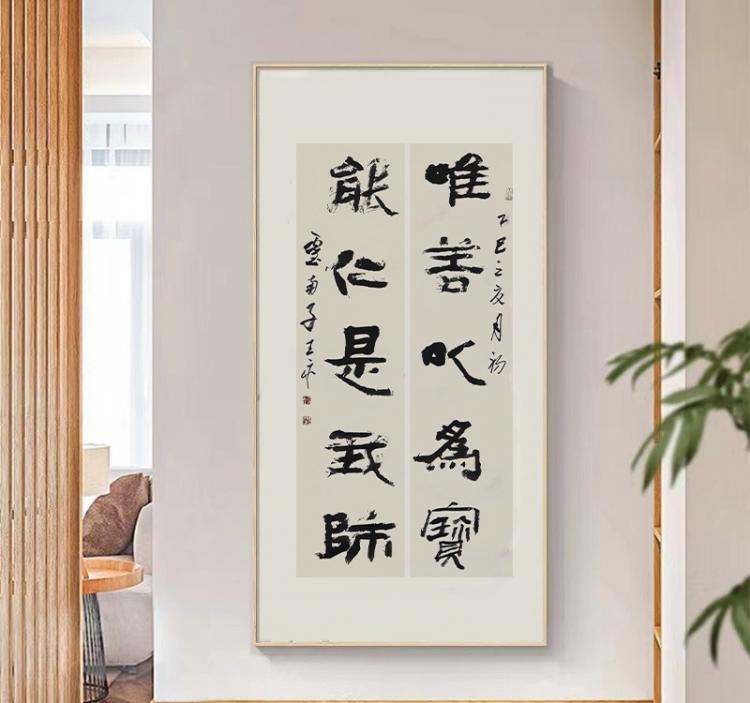 乙巳之夏月初
唯善以爲寶
能仁是我師
南子王